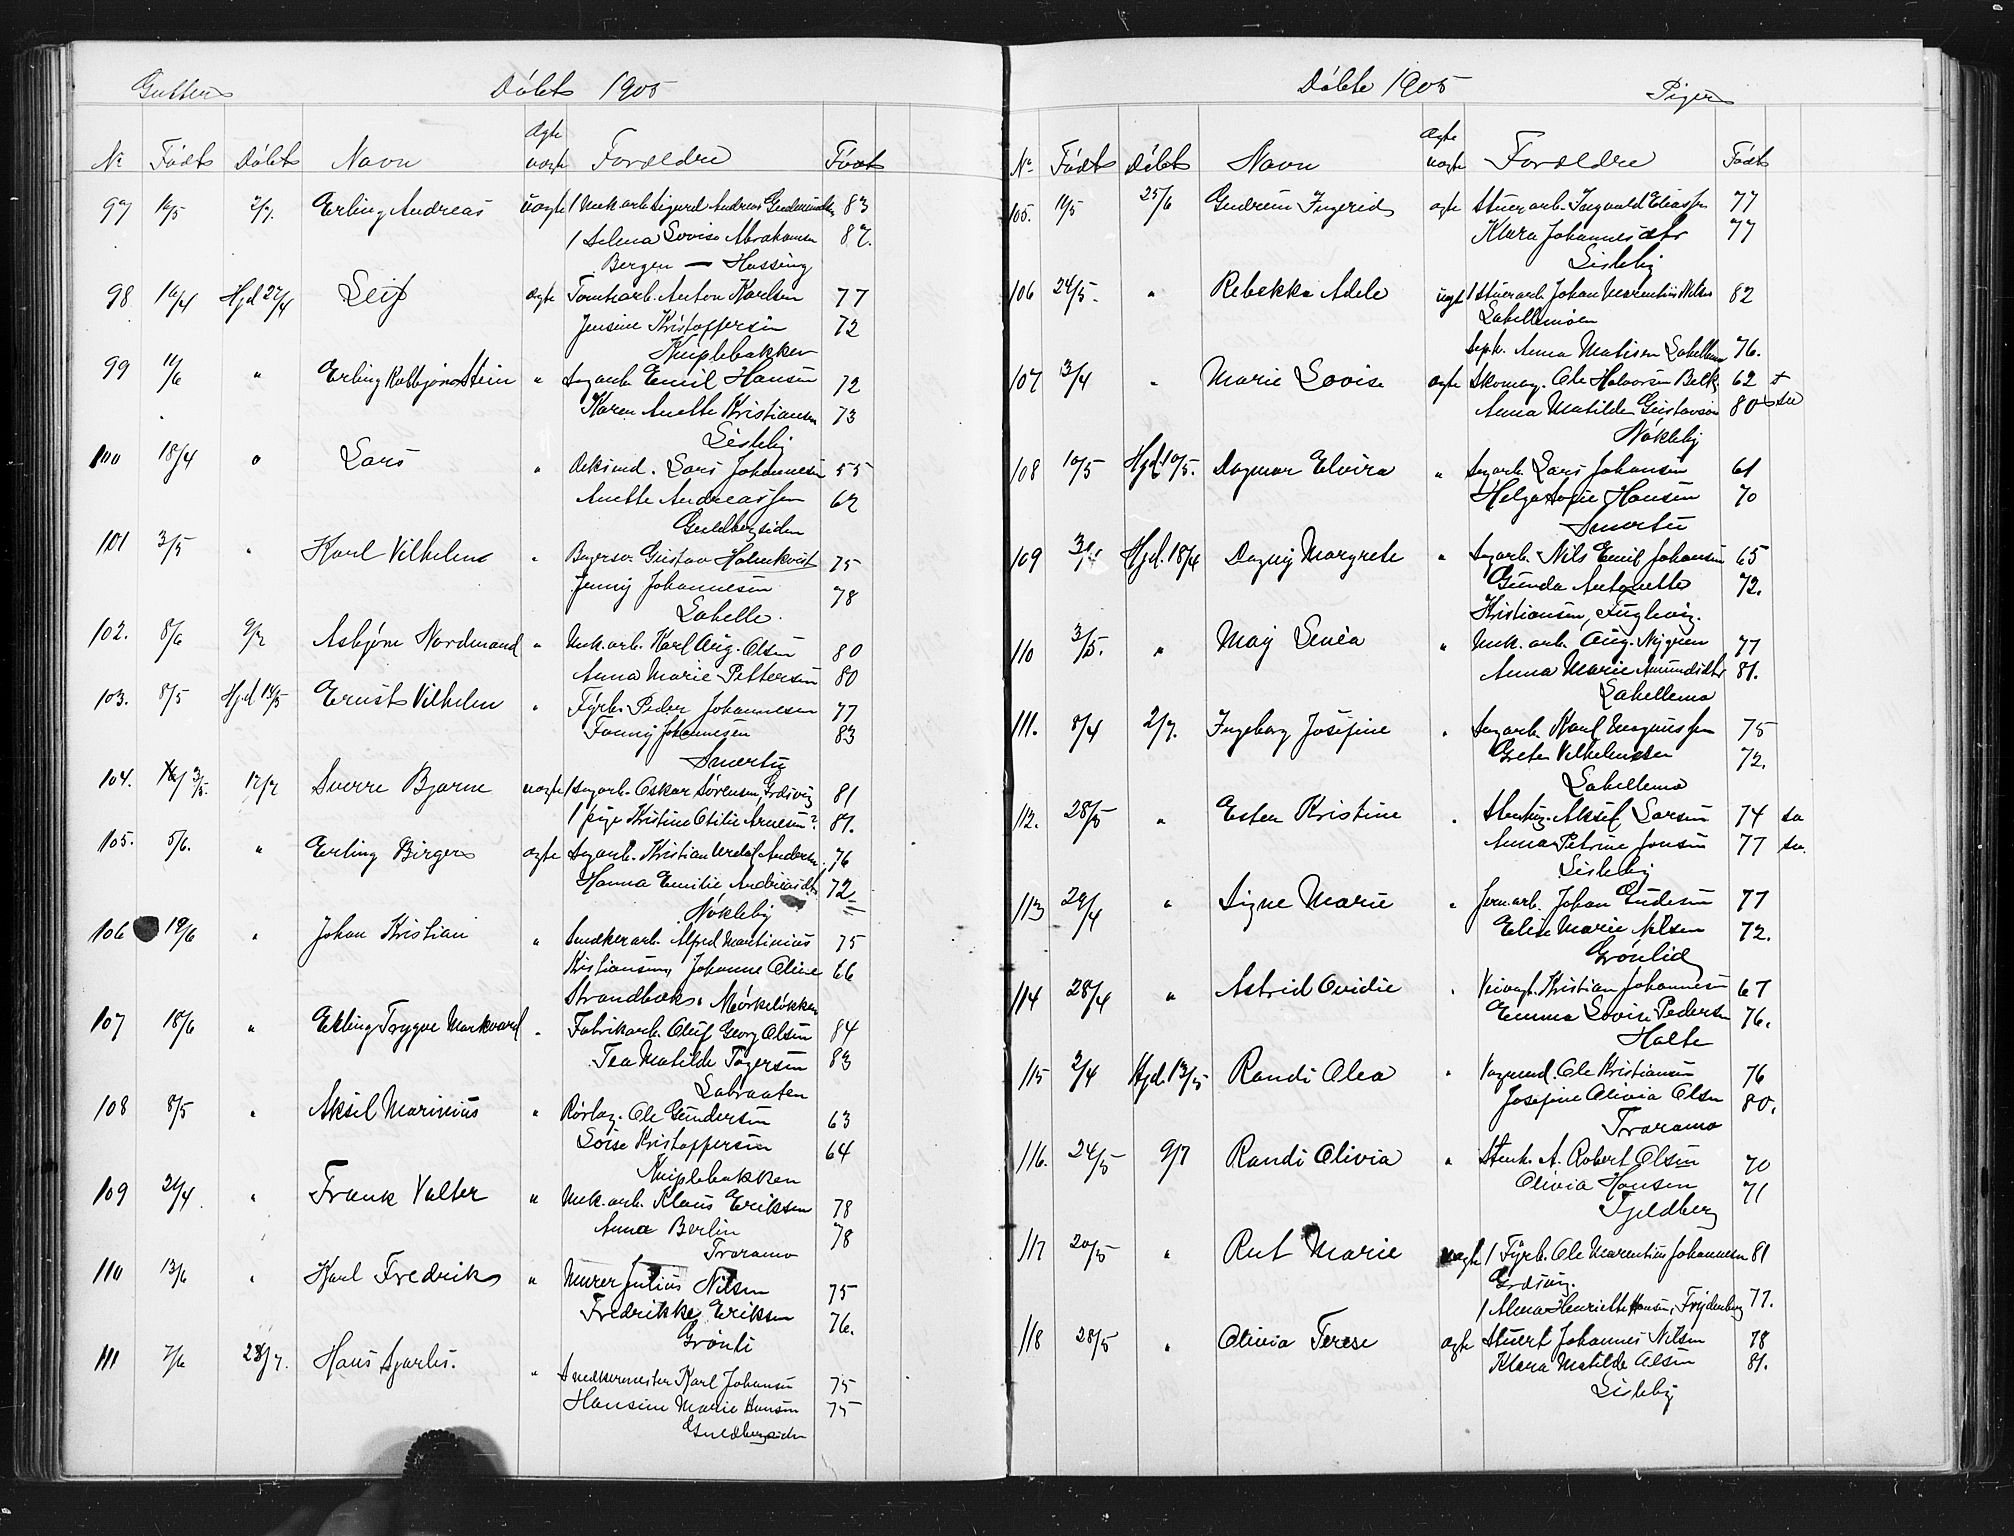 Gutter Døbte 1905
Ægte
No Født Døbt Navn uægte Forældre Født
97 16/5 2/7. Erling Andreas uægte 1 Mek. arb. Sigurd Andreas Gudmundsen 83
1 Selma Lovise Abrahamsen 87.
Bergen — Hassing
98 16/4 Hjd 27/4 Leif ægte Tomtearb. Anton Karlsen 77
Jensine Kristoffersen 72
Kniplebakken
99 11/6 " Erling Kolbjørn Stein " Sagarb. Emil Hansen 72
Karen Anette Kristiansen 73
Lisleby
100 18/4 " Lars " Arbmd. Lars Johannesen 55
Anette Andreassen 62
Guldbergsiden
101 3/5 " Karl Vilhelm " Bagersv. Gustav Holmkvist 75
Jenny Johannesen 78
Labelle.
102. 8/6 9/7 Asbjørn Nordmand " Mek. arb. Karl Aug. Olsen 80
Anna Marie Pettersen 80
103. 8/5 Hjd 13/5 Ernst Vilhelm " Fyrb. Peder Johannesen 77
Fanny Johannesen 83
Smertu
104. 3/5. 12/7 Sverre Bjarne uægte 1 Sagarb. Oskar Sørensen, Græsvig 81
1 pige Kristine Otilie Arnesen? 87.
105. 5/6. " Erling Birger ægte Sagarb. Kristian Andersen. 76
Hanna Emilie Andreasdtr 72
Nøkleby
106 19/6 " Johan Kristian " Snedkerarb. Alfred Martinius 75
Kristiansen, Johanne Oline 66
Strandbæk. Mørkeløkken
107 18/6 " Erling Trygve Markvard " Fabrikarb. Oluf Georg Olsen 84
Tea Matilde Tøgersen 83
Labraaten
108 8/5 " Aksel Marinius " Rørlæg. Ole Gundersen 63
Lovise Kristoffersen 64
Kniplebakken
109 21/4 " Frank Valter " Mek. arb. Klaus Eriksen 78
Anna Berlin 78
Traramo
110 13/6 " Karl Fredrik " Murer Julius Nilsen 75
Fredrikke Eriksen 76.
Grønli
111 7/6 23/7. Hans Sjarles. " Snedkermester Karl Johansen 75
Hansine Marie Hansen 75
Guldbergsiden
Døbte 1905 Piger
Ægte
No Født Døbt Navn uægte Forældre Født
105. 11/5 25/6 Gudrun Ingrid ægte Stuerarb. Ingvald Eliassen 77
Klara Johannesdtr 77
Lisleby
106 24/5. " Rebekka Adele uægt 1 Stuerarb. Johan Marentius Nilsen 82
Labellemoen
Sepk. Anna Matisen Labellemo 76.
107 13/4 " Marie Lovise ægte Skomag. Ole Halvorsen Belk 62 +
Anna Matilde Gustavson 80
Nøkleby
108 10/5 Hjd. 10/5. Dagmar Elvira " Sagarb. Lars Johansen 61
Helga Sofie Hansen 70
Smertu
109 3/4 Hjd. 18/4 Dagny Margrete " Sagarb. Nils Emil Johansen 65
Gunda Antonette 72.
Kristiansen, Fuglevig.
110 3/5. " May Linéa " Mek. arb. Aug. Nygren 77
Anna Marie Amundsdtr 81.
Labellemo
111. 8/4 2/7. Ingeborg Josefine " Sagarb. Karl Magnussen 75
Grete Vilhelmsen 72.
Labellemo
112. 28/5 " Ester Kristine " Stenhug. Aksel Larsen 74 sv
Anna Petrine Jonsen 77 sv.
Lisleby
113 29/4 " Signe Marie " Jernarb. Johan Gudesen 77
Elise Marie Nilsen 72.
Grønlid
114 28/4 " Astrid Ovidie " Veivogt. Kristian Johannesen 67
Emma Lovise Pedersen 76.
Holte
115 2/4 Hjd. 13/5 Randi Olea " Vognmd. Ole Kristiansen 76
Josefine Olivia Olsen 80.
Traramo
116. 24/5 9/7 Randi Olivia " Stenh. A. Robert Olsen 70
Olivia Hansen 71
Fjeldberg
117 20/5 " Rut Marie uægte 1 Fyrb. Ole Marentius Johannesen 81
Græsvig.
1 Alma Henriette Hansen, Frydenberg 77.
118 28/5 " Olivia Terese ægte Stuert Johannes Nilsen 78
Klara Matilde Olsen 81.
Lisleby